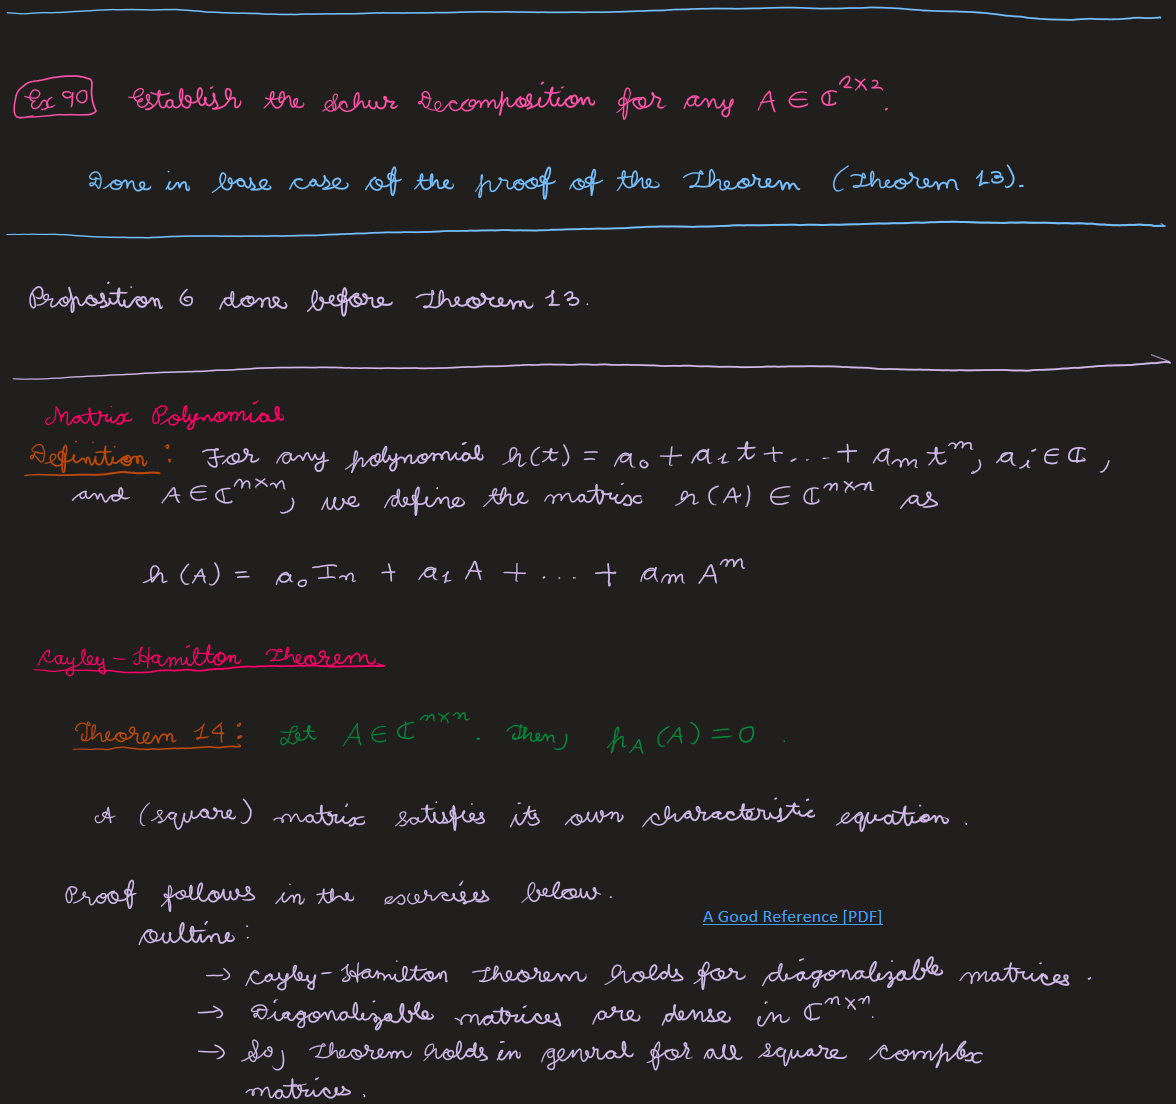 Ex 90 Establish the Schur Decomposition for any A ∈ ℂ^{2×2}.
Done in base case of the proof of the Theorem (Theorem 13).
Proposition 6 done before Theorem 13.
Matrix Polynomial
Definition: For any polynomial h(t) = a₀ + a₁t + ... + aₘt^m, aᵢ ∈ ℂ,
and A ∈ ℂ^{n×n}, we define the matrix h(A) ∈ ℂ^{n×n} as
h(A) = a₀Iₙ + a₁A + ... + aₘA^m
Cayley-Hamilton Theorem
Theorem 14: Let A ∈ ℂ^{n×n}. Then, h_A(A) = 0.
A (square) matrix satisfies its own characteristic equation.
Proof follows in the exercises below.
A Good Reference [PDF]
Outline:
→ Cayley-Hamilton Theorem holds for diagonalizable matrices.
→ Diagonalizable matrices are dense in ℂ^{n×n}.
→ So, Theorem holds in general for all square complex
matrices.